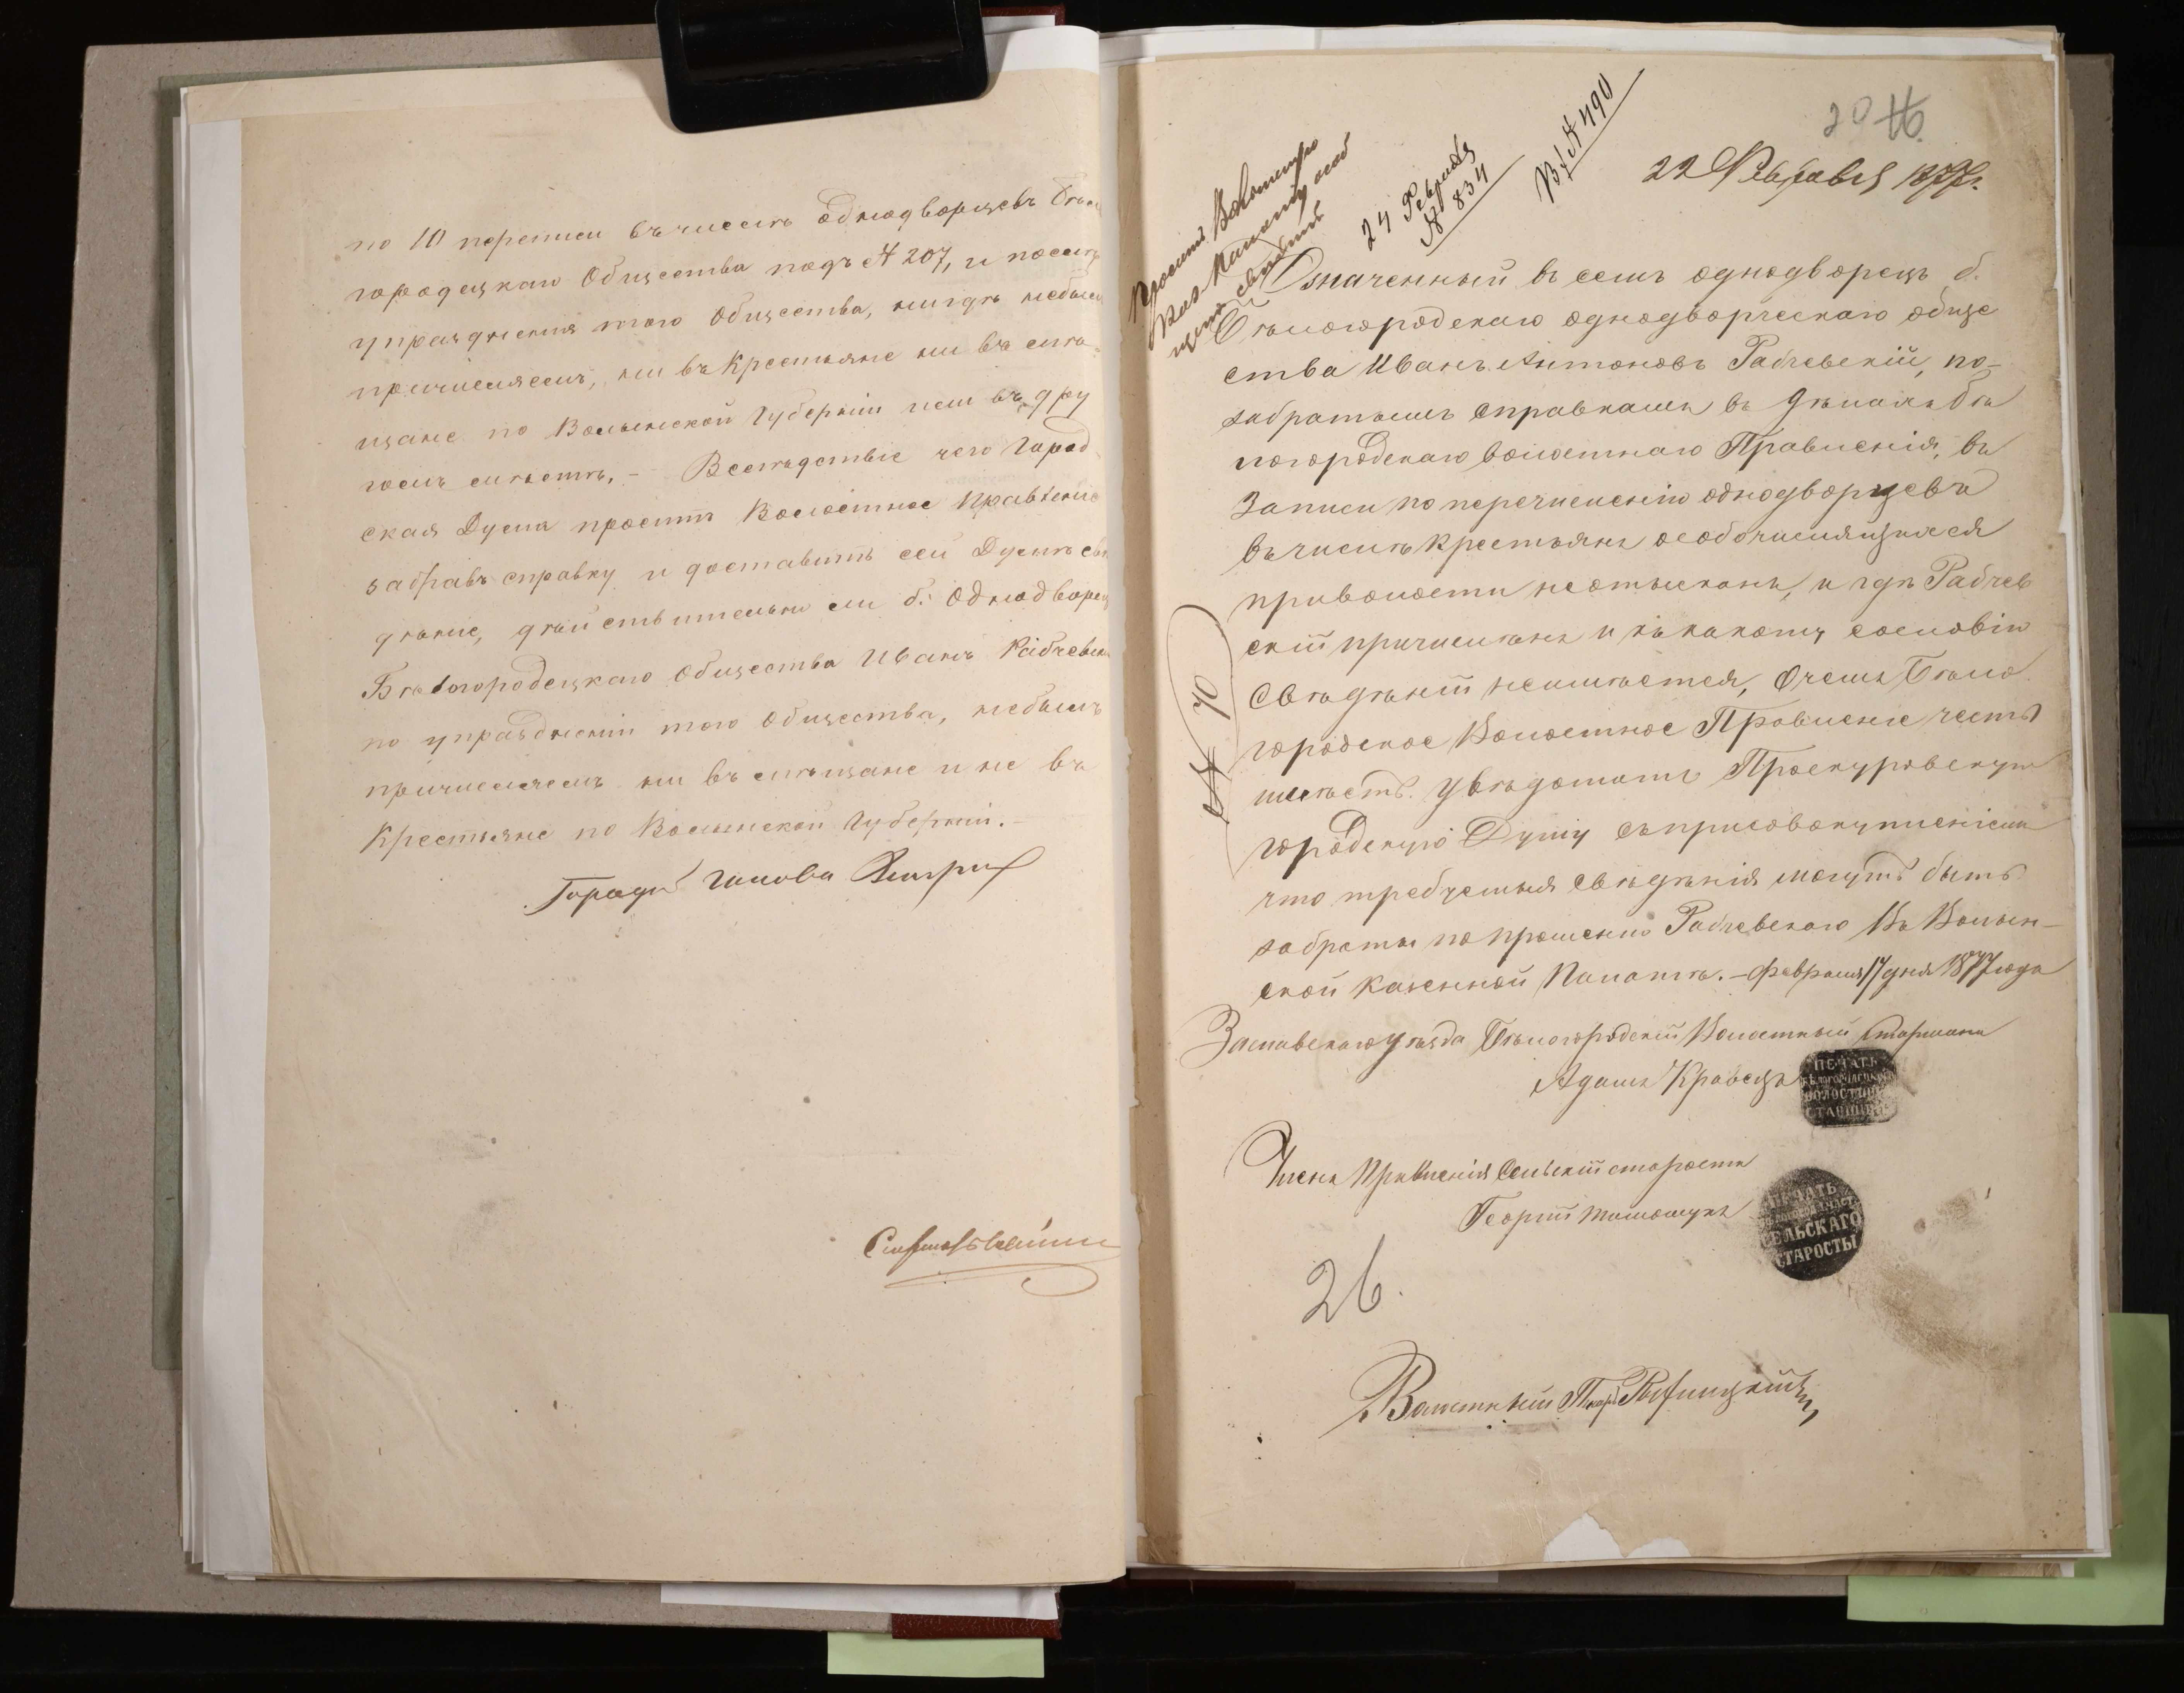 по 10 переписи въ числѣ однодворцевъ Бѣло
городецкаго Общества подъ № 207, и послѣ
упраздненія того Общества, нигдѣ небылъ
причисляемъ, ни въ Крестьяне ни въ мѣ
щане по Волынской Губерніи или въ дру
гомъ мѣстѣ. – Вслѣдствіе чего Город
ская Дума проситъ Волостное Правленіе
забравъ справку и доставить сей Думѣ свѣ
дѣніе, дѣйствительно ли б. Однодворец
Бѣлогородецкаго Общества Иванъ Рабчевск
по упраздненіи того Общества, небылъ
причисляемъ ни въ мѣщане и не въ
Крестьяне по Волынской Губерніи. –
Городской Голова
20
22 Февраля 1877 г.
24 Февраля
№ 834
Вх № 490
Означенный въ семъ однодворецъ б.
Бѣлогородскаго однодворческаго обще
ства Иванъ Антоновъ Рабчевскій, по-
забратымъ справкамъ въ дѣлахъ Бѣ
логородскаго волостнаго Правленія, въ
Записи по перечисленію однодворцевъ
въ число крестьянъ особочислящихся
приволости неотысканъ, и гдѣ Рабчев
скій причисленъ и къ какому сословію
Свѣдѣній неимѣется, О чемъ Бѣло
городское Волостное Правленіе честь
имѣетъ увѣдомить Проскуровскую
городскую Думу съ присовокупленіемъ
что требуемыя свѣдѣнія могутъ быть
забраты по прошенію Рабчевскаго Въ Волын-
ской Казенной Палатѣ. – Февраля 17 дня 1877 года
№ 70
Заславскаго уѣзда Бѣлогородскій Волостный Старшина
Адамъ Кравецъ
ПЕЧАТЬ
БѢЛОГОРОДЕЦКАГО
ВОЛОСТН
СТАРШИН
Членъ Правленія Сельскій староста
Георгій Тимощукъ
ПЕЧАТЬ
СЕЛЬСКАГО
СТАРОСТЫ
26.
Волостный Писарь